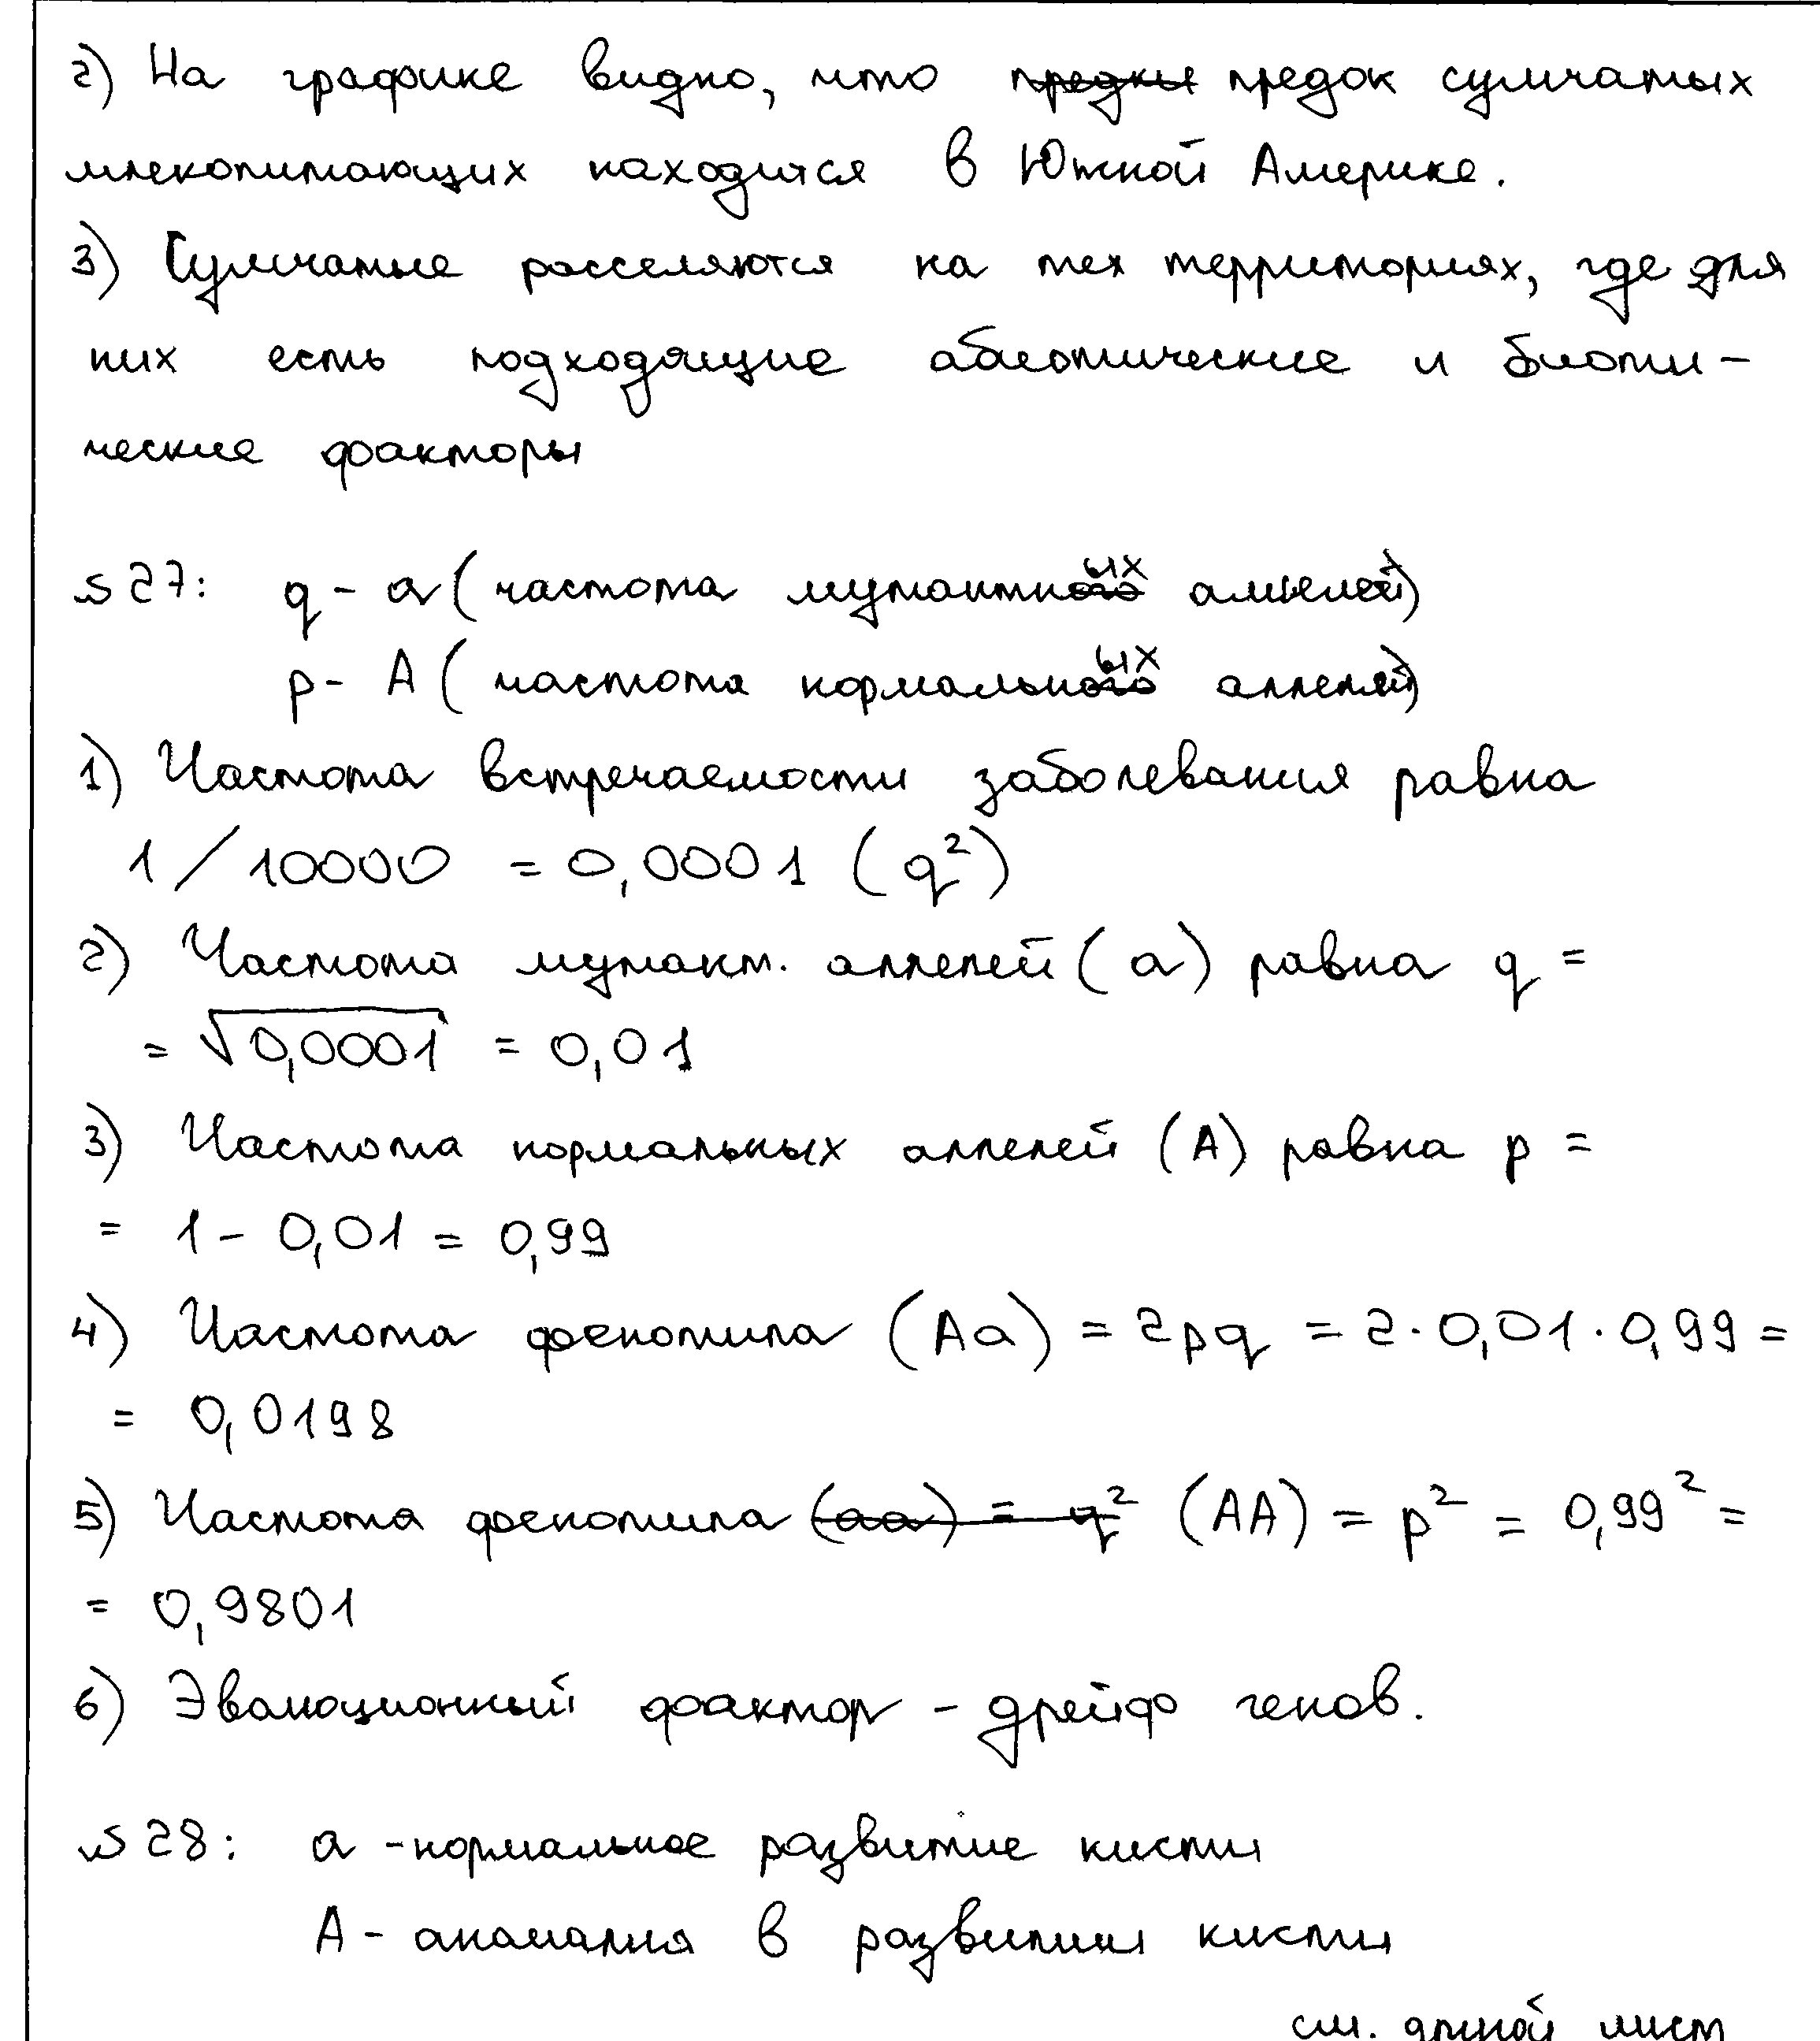 2) На графике видно, что предки предок сумчатых
млекопитающих находится в Южной Америке.
3) Сумчатые расселяются на тех территориях, где для
них есть подходящие абиотические и биоти-
ческие факторы
№27: q - a ( частота мутантного ых аллелей)
p - A ( частота нормального ых аллелей)
1) Частота встречаемости заболевания равна
1 / 10000 = 0,0001 (q²)
2) Частота мутант. аллелей (a) равна q =
= √0,0001 = 0,01
3) Частота нормальных аллелей (A) равна p =
= 1 - 0,01 = 0,99
4) Частота фенотипа (Aa) = 2pq = 2 · 0,01 · 0,99 =
= 0,0198
5) Частота фенотипа (aa) = q² (AA) = p² = 0,99² =
= 0,9801
6) Эволюционный фактор - дрейф генов.
№28: a - нормальное развитие кисти
A - аномалия в развитии кисти
см. другой лист